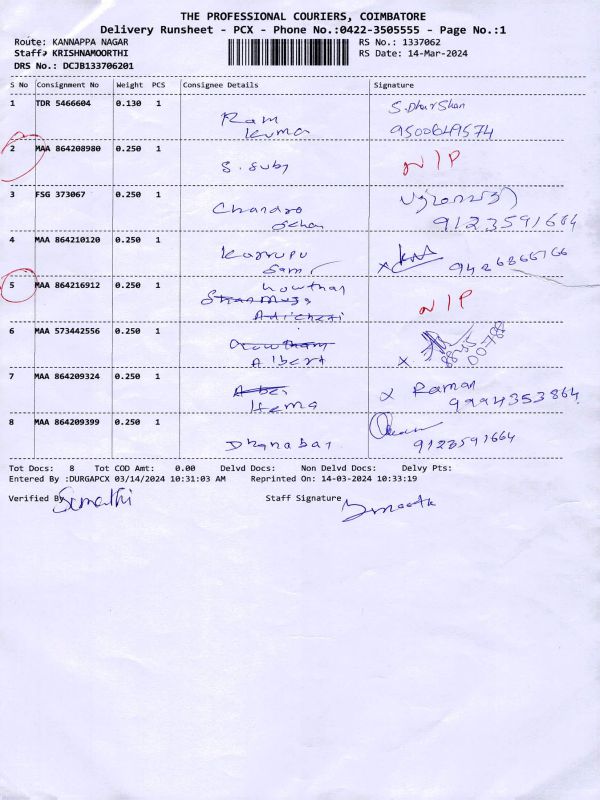 THE PROFESSIONAL COURIERS, COIMBATORE
Delivery Runsheet - PCX - Phone No.:0422-3505555 - Page No.:1
Route: KANNAPPA NAGAR RS No.: 1337062
Staff: KRISHNAMOORTHI RS Date: 14-Mar-2024
DRS No.: DCJB133706201
S No Consignment No Weight PCS Consignee Details Signature
1 TDR 5466604 0.130 1 Ram S.Dharshan
Kuma 9500649574
2 MAA 864208980 0.250 1 S. Suby N/P
3 FSG 373067 0.250 1 Chandro
Sekar 9123591664
4 MAA 864210120 0.250 1 Karrupu
Sami 9426866766
5 MAA 864216912 0.250 1 Gowthas N/P
6 MAA 573442556 0.250 1 Gowtham
Albert
7 MAA 864209324 0.250 1 x Raman
Hema 9994353864
8 MAA 864209399 0.250 1 Dhanabar 9123591664
Tot Docs: 8 Tot COD Amt: 0.00 Delvd Docs: Non Delvd Docs: Delvy Pts:
Entered By :DURGAPCX 03/14/2024 10:31:03 AM Reprinted On: 14-03-2024 10:33:19
Verified By Staff Signature